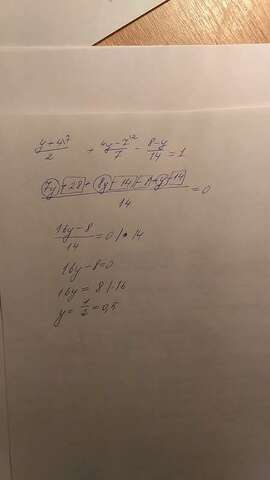 (y+4)⁷/2 + (4y-7)²/7 - (8-y)/14 = 1
(7y+28+8y-14-8+y-14)/14 = 0
(16y-8)/14 = 0 |•14
16y-8=0
16y = 8 |:16
y = 1/2 = 0,5